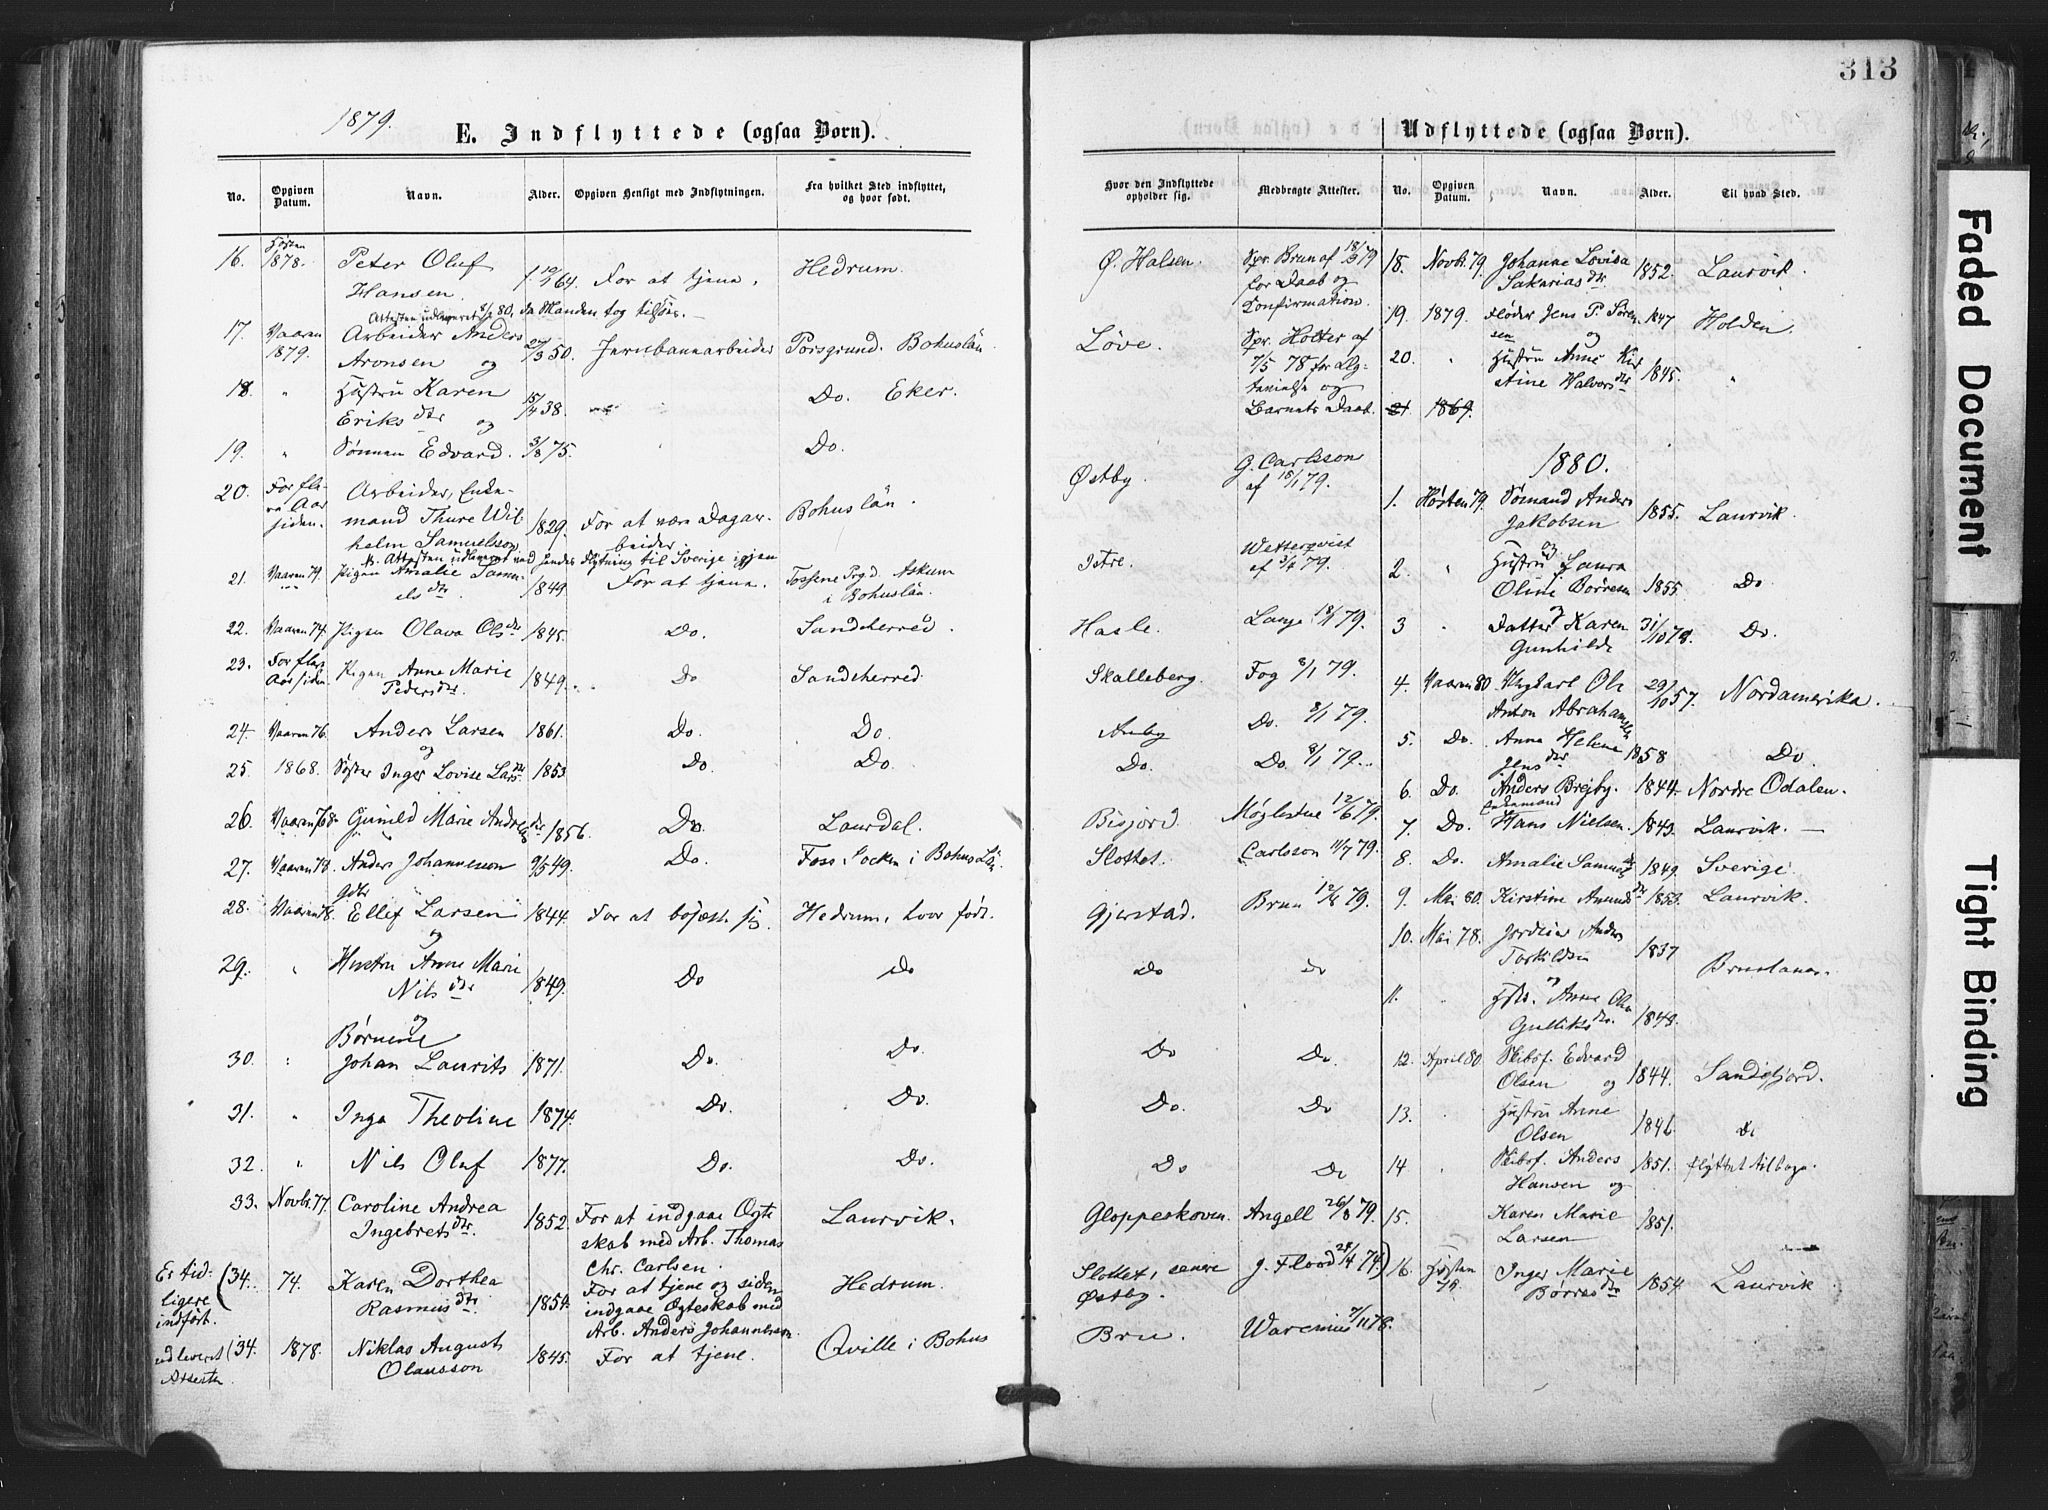 313
1879.
E. Indflyttede (ogsaa Børn).
Udflyttede (ogsaa Børn).
No. Opgiven Datum. Navn. Alder. Opgiven Hensigt med Indflytningen. Fra hvilket Sted indflyttet, og hvor født.
Hvor den Indflyttede opholder sig. Medbragte Attester. No. Opgiven Datum. Navn. Alder. Til hvad Sted.
16. Høsten 1878. Peter Oluf Hansen. For at tjene. Hedrum.
Attesten udleveret 80, da Manden tog tilsøes.
17. Vaaren 1879. Arbeider Anders Aronsen og 27/3 50. Jernbanearbeider Porsgrund. Bohuslän.
18. " Hustru Karen Eriksdtr og 15/4 38. Do. Eker.
19. " Sønnen Edvard. 3/8 75. Do.
20. For flere Aar siden. Arbeider, Enkemand Thure Wilhelm Samuelsson 1829. For at være Dagarbeider. Bohuslän.
Attesten udleveret ved hendes Flytning til Sverige igjen
21. Vaaren 79. Pigen Amalie Samuelsdtr. 1849. For at tjene. Tossene Prgd. Askum i Bohuslän.
22. Vaaren 74. Pigen Olava Olsdtr 1845. Do. Sandeherred.
23. For flere Aar siden Pigen Anne Marie Pedersdtr. 1849. Do Sandeherred.
24. Vaaren 76. Anders Larsen og 1861. Do. Do.
25. 1868. Søster Inger Lovise Larsdtr 1853. Do. Do.
26. Vaaren 78. Gunild Marie Andreasdtr 1856. Do. Laurdal.
27. Vaaren 78. Anders Johannesson 9/5 49. Do. Foss Socken i Bohus Län
28. Vaaren 78. Gdbr Ellef Larsen og 1844. For at bosætte sig. Hedrum, hvor født.
29. " Hustru Anne Marie Nilsdtr 1849. Do Do
og Børnene
30. " Johan Laurits 1871. Do. Do.
31. " Inga Theoline 1874. Do. Do.
32. " Nils Oluf 1877. Do. Do.
33. Novbr. 77. Caroline Andrea Ingebretsdtr. 1852. For at indgaae Ægteskab med Arb. Thomas Chr. Carlsen. Laurvik.
Er tidligere indført.
(34. 74. Karen Dorthea Rasmusdtr 1854. For at tjene og siden indgaae Ægteskab med Arb. Anders Johannesen. Hedrum.
udleveret Attesten
(34. 1878. Niklas August Olausson 1845. For at tjene. Qville i Bohus
Ø. Halsen. Spr. Brun af for Daab og Konfirmation.
Løve. Spr. Holter af 7/5 78 for Ægtevielse og Barnets Daab.
Østby. G. Carlsson af 15/1 79.
Istre. Wetterqvist af 3/4 79.
Hasle. Lange 18/1 79.
Skalleberg. Fog 8/1 79.
Auby Do. 8/1 79.
Do. Do. 8/1 79.
Bisjord. Møglestue 12/6 79.
Slottet. Carlsson 11/7 79.
Gjerstad. Brun 12/8 79.
Do Do
Do Do
Do. Do
Do Do
Gloppeskoven. Angell 26/8 79.
Slottet, senere Østby. J. Flood 28/4 74)
Bru. Warenius 7/11 78.
18. Novbr. 79. Johanne Lovisa Sakariasdtr 1852. Laurvik.
19. 1879. Fløder Jens P. Sørensen og 1847 Holden.
20. " Hustru Anne Kirstine Halvorsdtr 1845. "
21. 1869.
1880.
1. Høsten 79. Sømand Anders Jakobsen og 1855. Laurvik.
2. " Hustru Laura Oline Børresen og 1855. Do
3 " Datter Karen Gunhilde 31/10 78. Do.
4. Vaaren 80 Ungkarl Ole Anton Abrahamsen 29/10 57. Nordamerika.
5. Do. Anna Helene Jensdtr 1858 Do.
6. Do. Anders Brejby. 1844. Nordre Odalen.
7. Do. Enkemand Hans Nielsen. 1843. Laurvik.
8. Do. Amalie Samuelsdtr 1849. Sverige.
9. Mai 80. Kirstine Amundsdtr 1853. Laurvik.
10. Mai 78. Anders Torkildsen og 1837 Brunlanæs.
11. " Hstr. Anne Olea Gulliksdtr. 1848.
12. April 80 Skibsf. Edvard Olsen og 1844. Sandefjord.
13. " Hustru Anne Olsen 1846. Do
14 " Skibsf. Anders Hansen og 1851. flyttet tilbage.
15. Karen Marie Larsen 1851.
16. Høsten Inger Marie Børresdtr 1854. Laurvik
Faded Document
Tight Binding